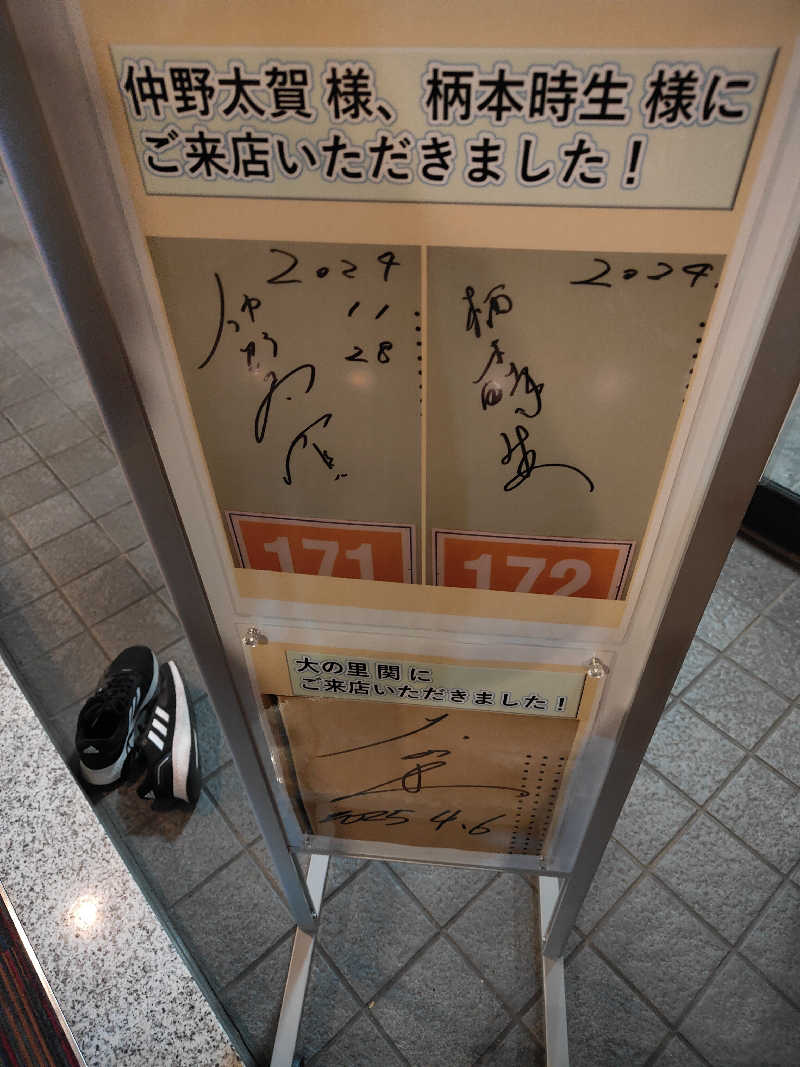 仲野太賀 様、柄本時生 様に
ご来店いただきました！
2024
11
28
仲野太賀
2024.
柄本時生
171
172
大の里 関 に
ご来店いただきました！
2025 4.6
adidas